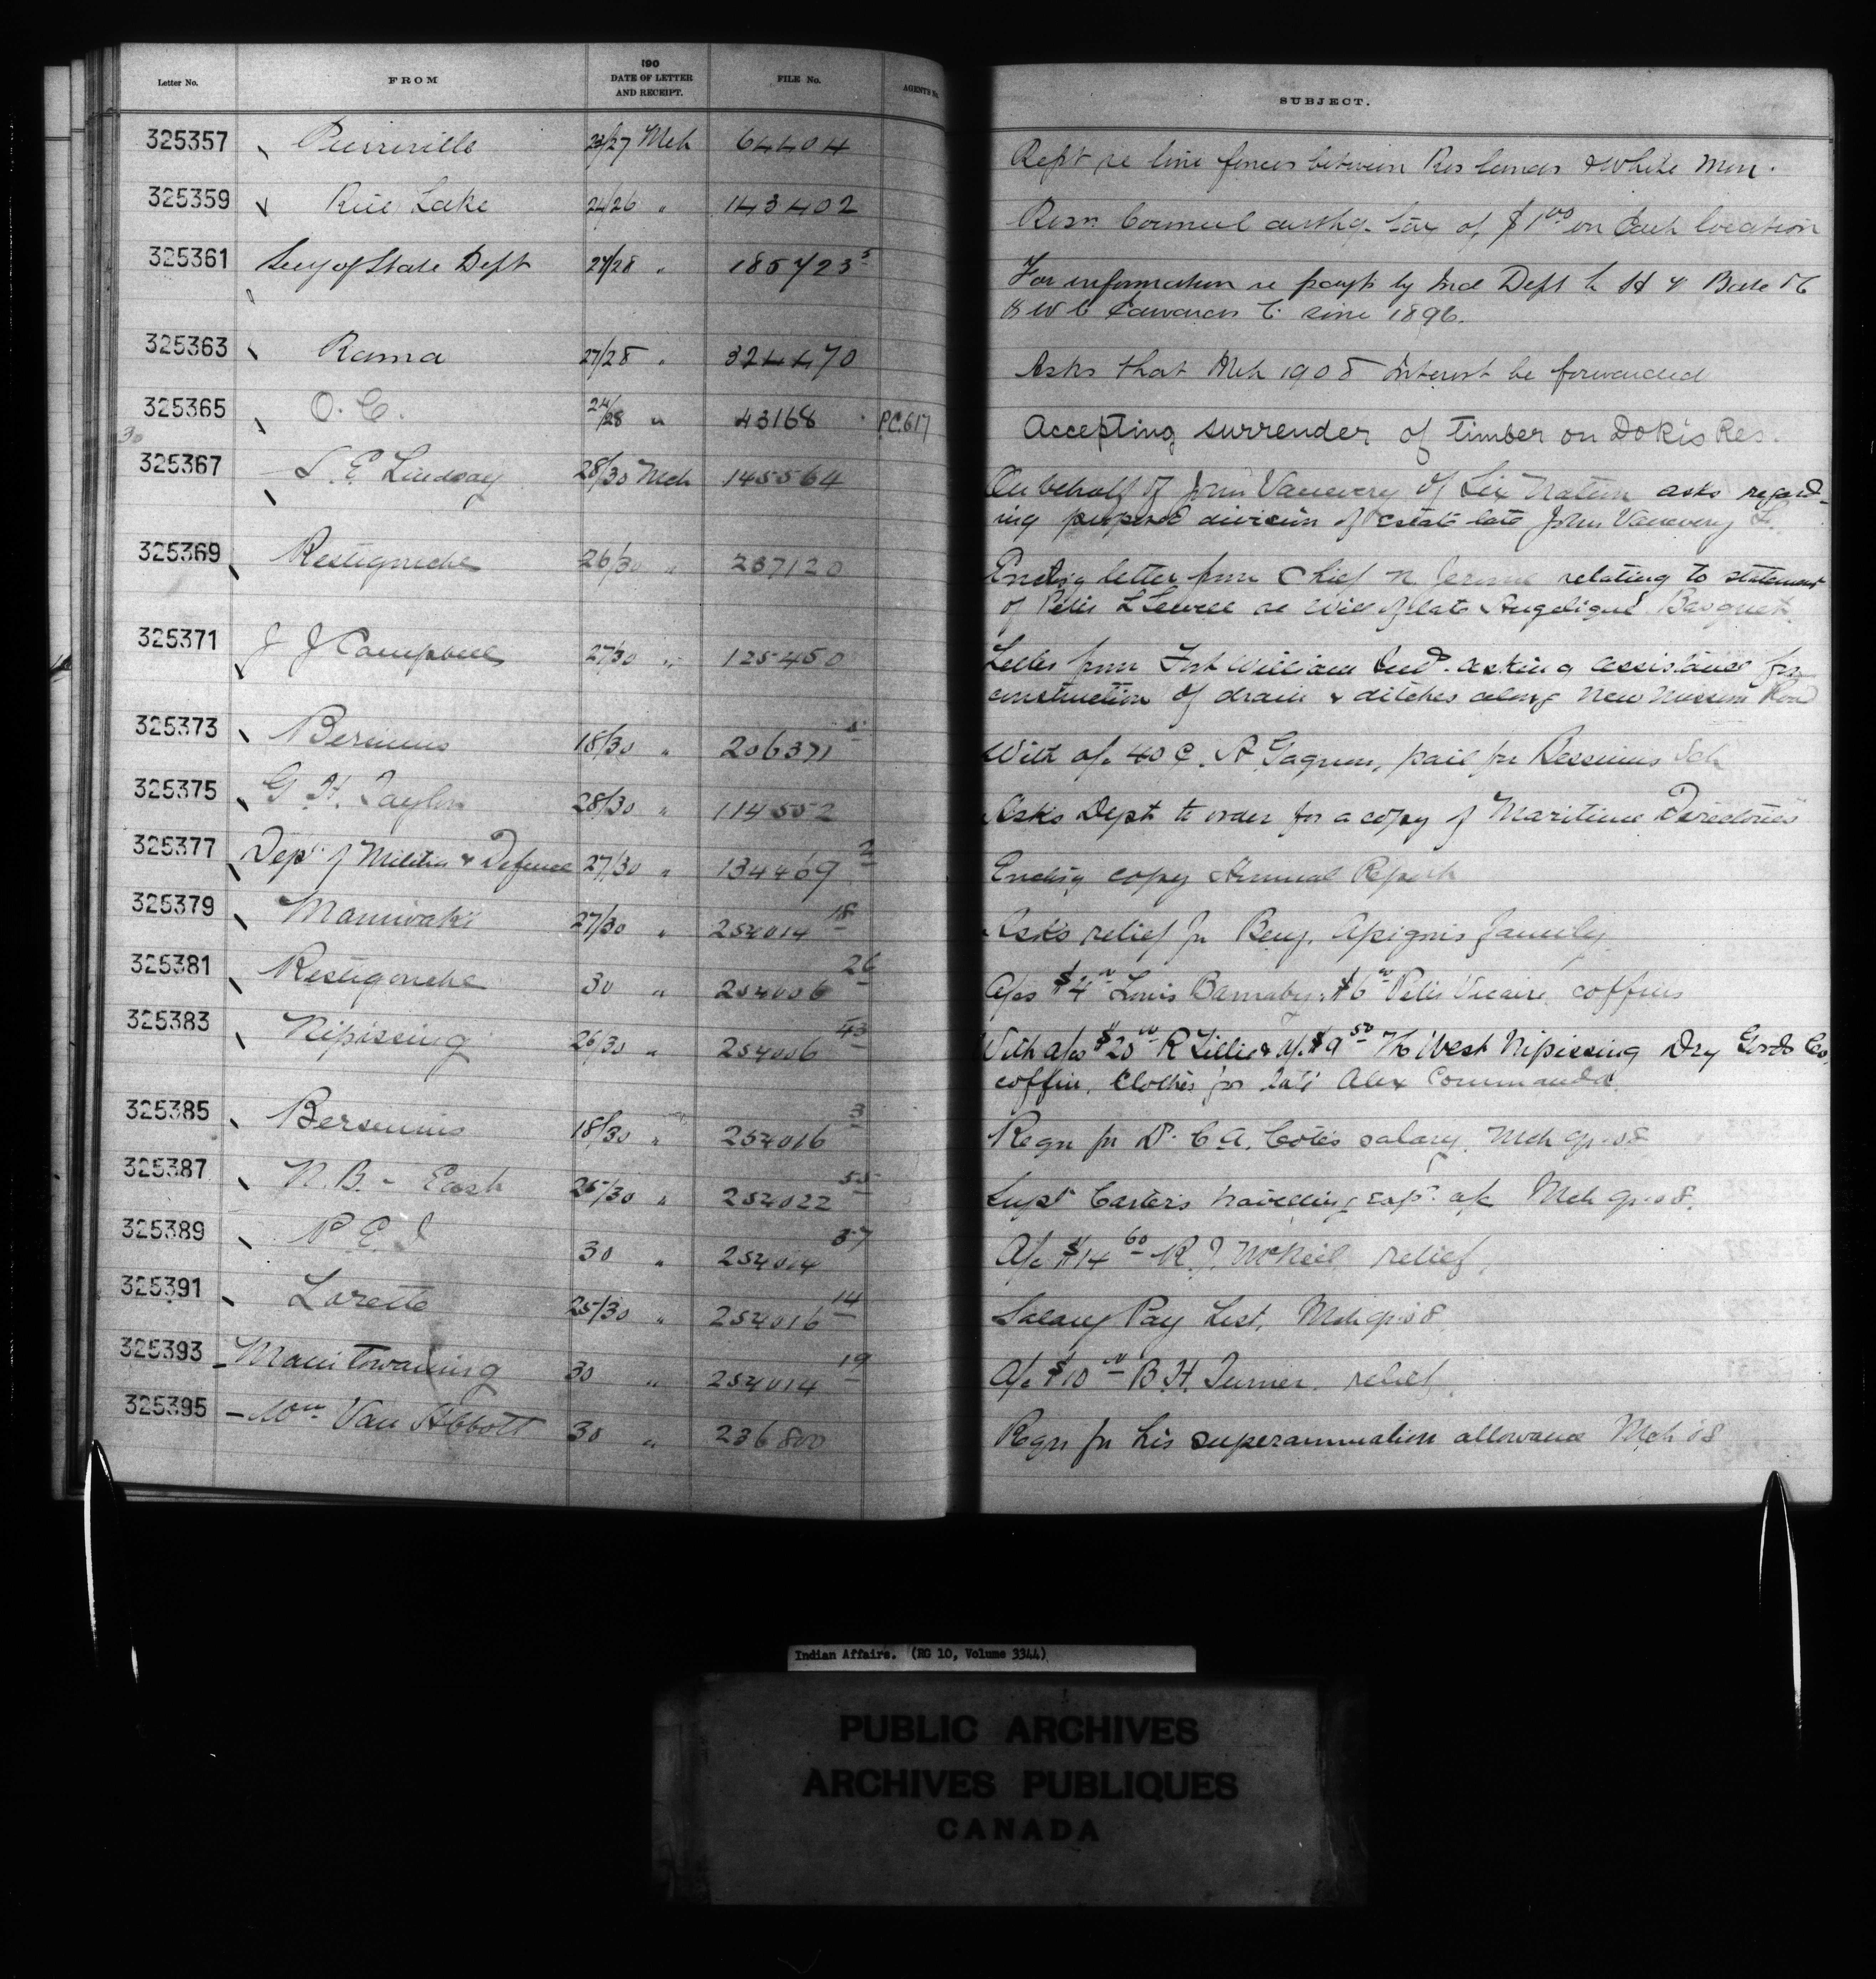 Letter No. FROM 190 DATE OF LETTER AND RECEIPT. FILE No. AGENTS No. SUBJECT.
325357 Pierreville 23/27 Mch 64404 Rept re line fences between Res lands & White Men.
325359 Rice Lake 24/26 " 143402 Resn Council authg. tax of $1.00 on each location
325361 Secy of State Dept 27/28 " 185723 5 For information re payt by Ind Dept to H & Bate
& W C Edwards Co since 1896.
325363 Rama 27/28 " 324470 Asks that Mch 1908 interest be forwarded
325365 O.C. 24/28 " 43168 P.C. 617 Accepting surrender of timber on Dokis Res.
30
325367 S. E. Lindsay 28/30 Mch 145564 On behalf of John Vanevery of Six Nation asks regard-
ing proposed division of estate late John Vanevery
325369 Restigouche 26/30 " 237120 Enclg letter from Chief N Jerome relating to statement
of Peter re Will of late Angelique Basquet
325371 J J Campbell 27/30 " 125450 Letter from Fort William Ind. asking assistance for
construction of drain & ditches along New Mission Road
325373 Bersimis 18/30 " 206371 5 With a/c 40¢. A Gagnon, pail for Bersimis Sch
325375 G H. Taylor 28/30 " 114552 Asks Dept to order for a copy of Maritime Directories
325377 Dept of Militia & Defence 27/30 " 134469 2 Enclg copy Annual Report
325379 Maniwaki 27/30 " 254014 18 Asks relief for Benj. Apignis family
325381 Restigouche 30 " 254006 26 A/cs $4.00 Louis Barnaby, $6.00 Peter Vicaire, coffins
325383 Nipissing 26/30 " 254006 43 With a/cs $20.00 R Lillie & a/c $9.50 The West Nipissing Dry Goods Co,
coffin, clothes for late Alex Commanda
325385 Bersimis 18/30 " 254016 3 Reqn for Dr. C. A. Cotes salary. Mch qr. 08
325387 N.B. - East 25/30 " 254022 55 Supt Carter's travelling exps. a/c Mch qr. 08.
325389 P. E. I 30 " 254014 37 A/c $14.60 R. J. McNeil relief
325391 Lorette 25/30 " 254016 14 Salary Pay List, Mch qr. 08
325393 Manitowaning 30 " 254014 19 A/c $10.00 B. H. Turner. relief.
325395 Wm Van Abbott 30 " 236800 Reqn for his superannuation allowance Mch 08
Indian Affairs. (RG 10, Volume 3344)
PUBLIC ARCHIVES
ARCHIVES PUBLIQUES
CANADA